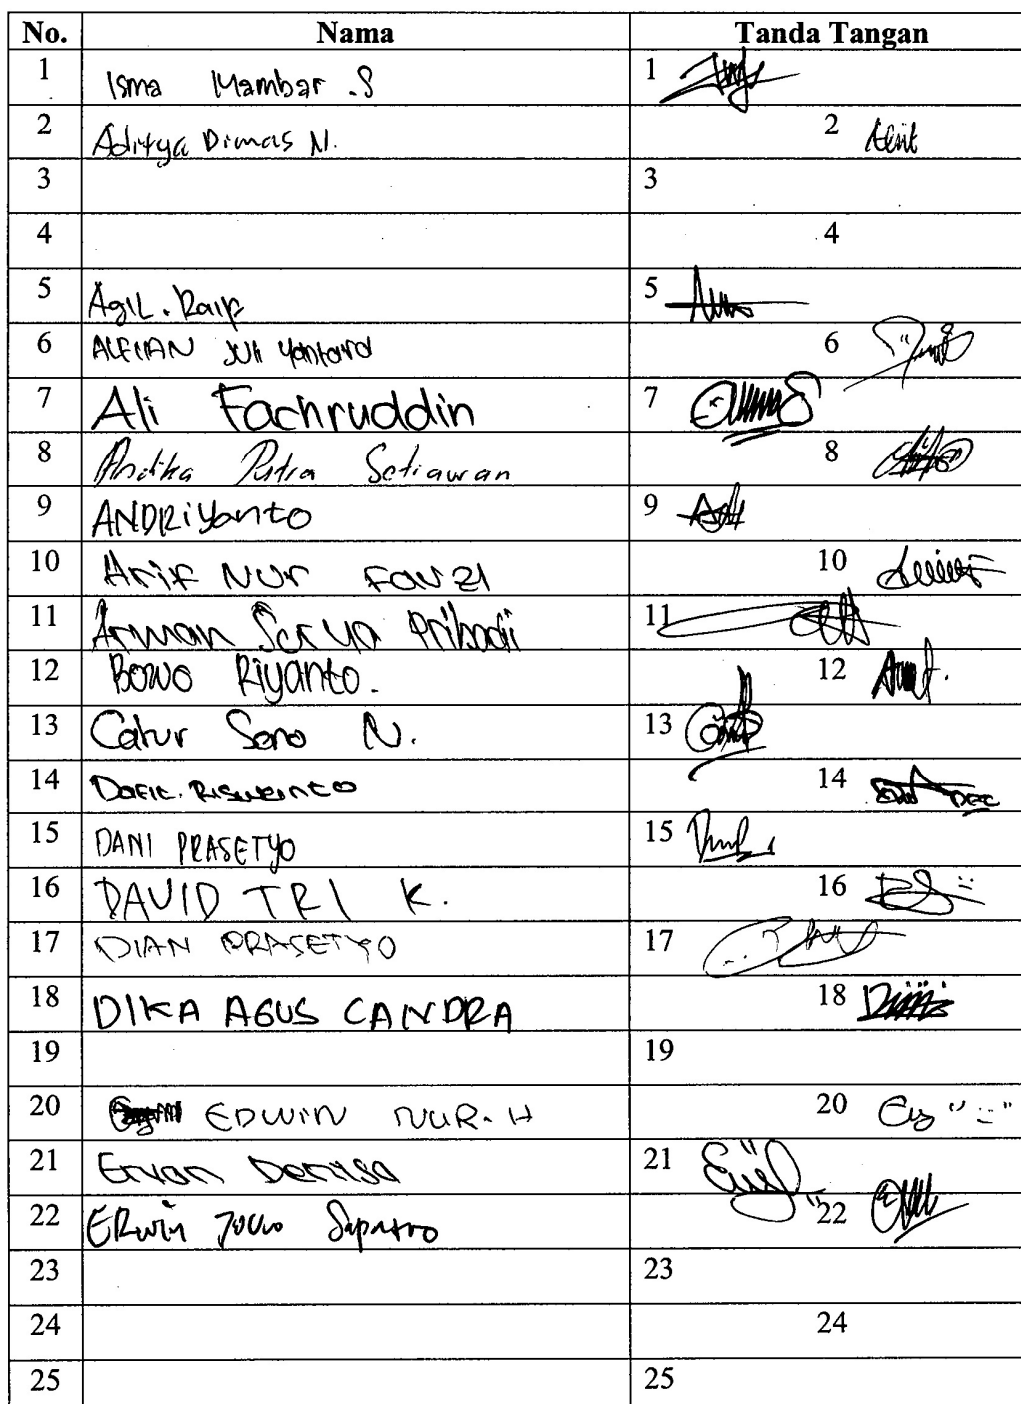 No. Nama Tanda Tangan
1 Isma Mambar .S 1
2 Aditya Dimas N. 2
3 3
4 4
5 Agil. Raif 5
6 ALFIAN Juli Yantoro 6
7 Ali Fachruddin 7
8 Andika Putra Setiawan 8
9 ANDRiyanto 9
10 Arif Nur Fauzi 10
11 Arman Surya Pribadi 11
12 Bowo Riyanto. 12
13 Catur Sono N. 13
14 Dafit. Riswanto 14
15 DANI PRASETYO 15
16 DAVID TRI K. 16
17 DIAN PRASETYO 17
18 DIKA AGUS CANDRA 18
19 19
20 EDWIN NUR. H 20
21 Ervan 21
22 ERwin Saputro 22
23 23
24 24
25 25